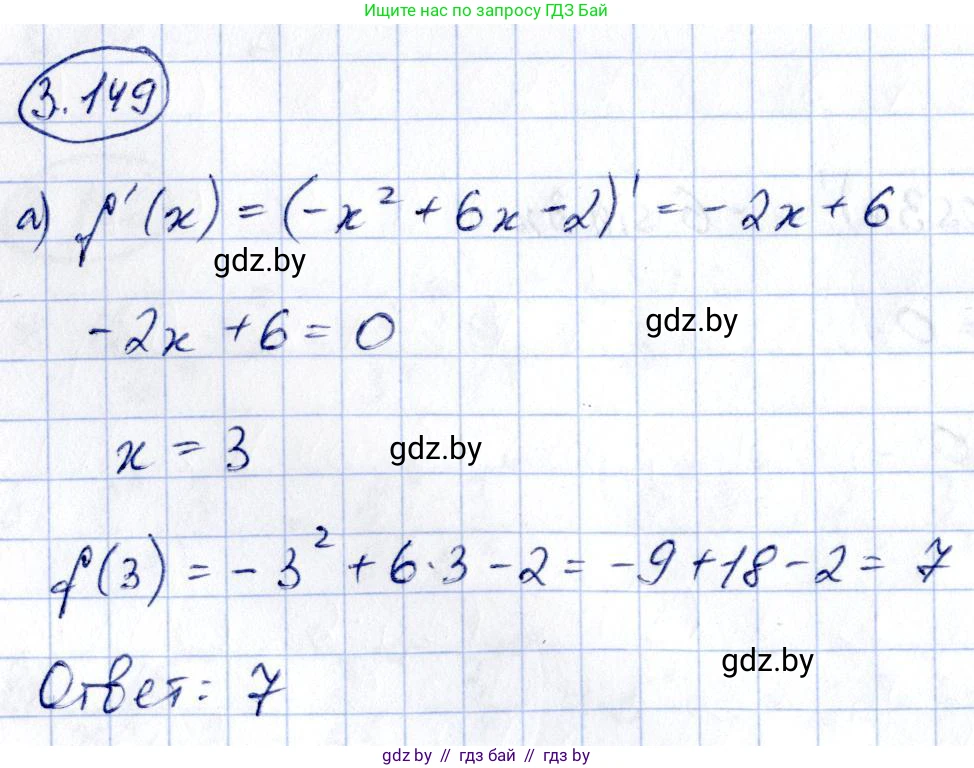 Ищите нас по запросу ГДЗ Бай
3.149
а) f'(x) = (-x² + 6x - 2)' = -2x + 6
gdz.by
-2x + 6 = 0
gdz.by
x = 3
gdz.by
f(3) = -3² + 6·3 - 2 = -9 + 18 - 2 = 7
gdz.by
Ответ: 7
gdz.by // гдз бай // gdz.by